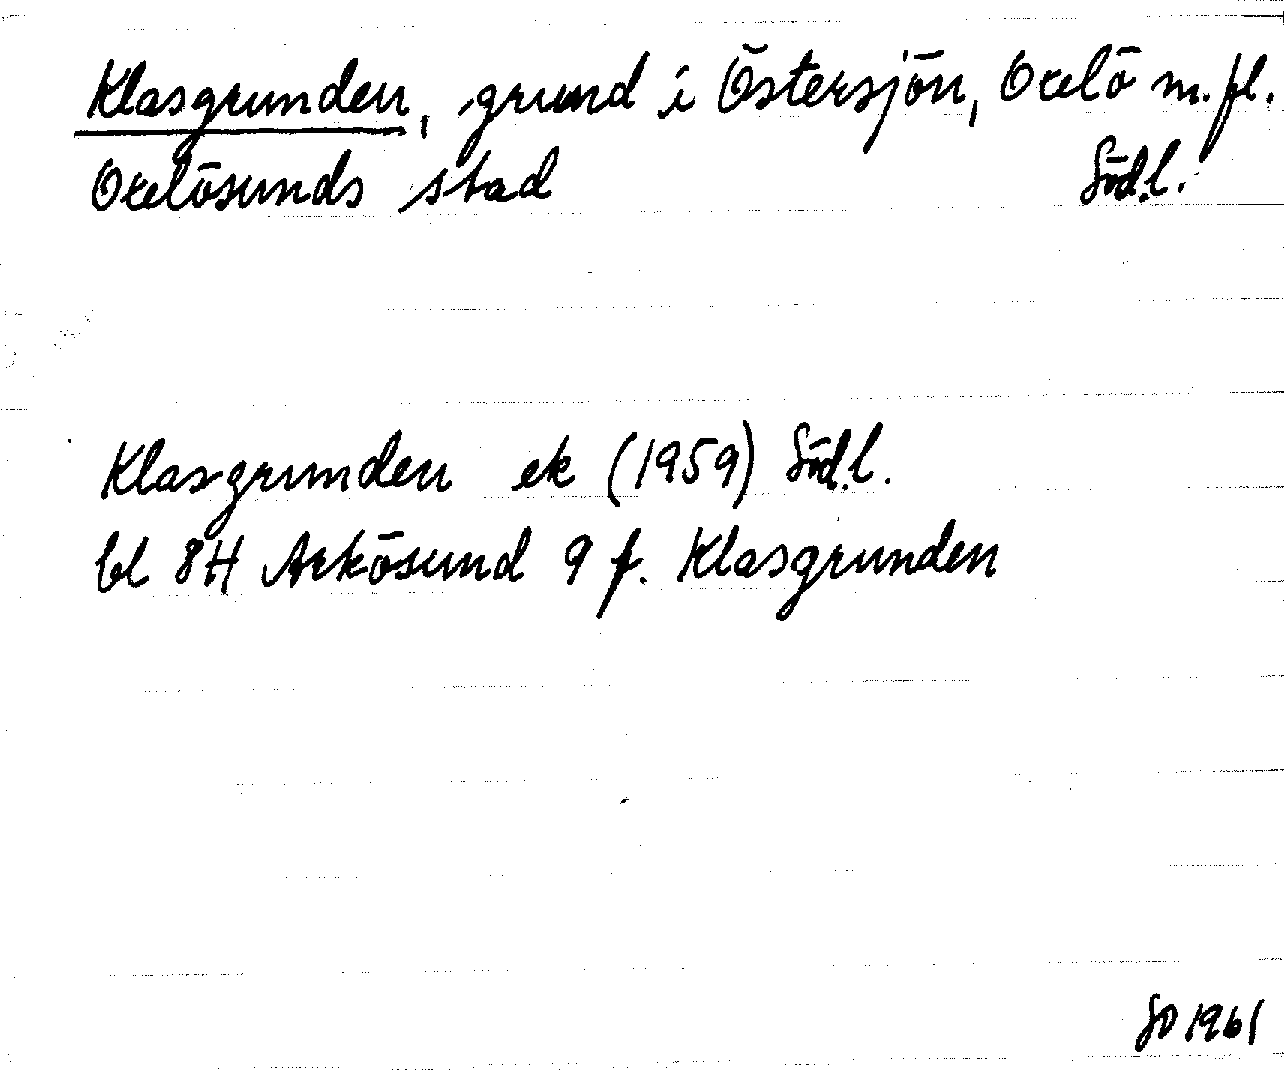 Klasgrunden, grund i Östersjön, Oxelö m.fl.
Oxelösunds stad Södl.
Klasgrunden ek (1959) Södl.
bl 8H Arkösund 9 f. Klasgrunden
SD 1961